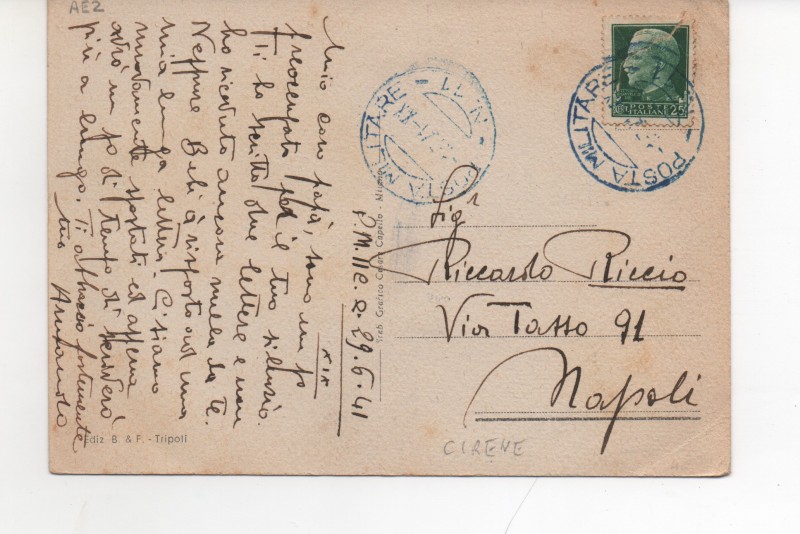 AE2
P.M. 11 C. a. 29.6.41
XIX
Mio caro papà, sono un po'
preoccupato per il tuo silenzio.
Ti ho scritto due lettere e non
ho ricevuto ancora nulla da te.
Neppure Bebi à risposto ad una
mia lunga lettera. Ci siamo
nuovamente spostati ed appena
avrò un po' di tempo di scriverò
più a lungo. Ti abbraccio fortemente
tuo Armando
Ediz. B. & F. - Tripoli
Stab. Grafico Cesare Capello - Milano
POSTA MILITARE - N. 11 -
POSTE
ITALIANE
25
POSTA MILITARE
Sigr
Riccardo Riccio
Via Tasso 91
Napoli
CIRENE